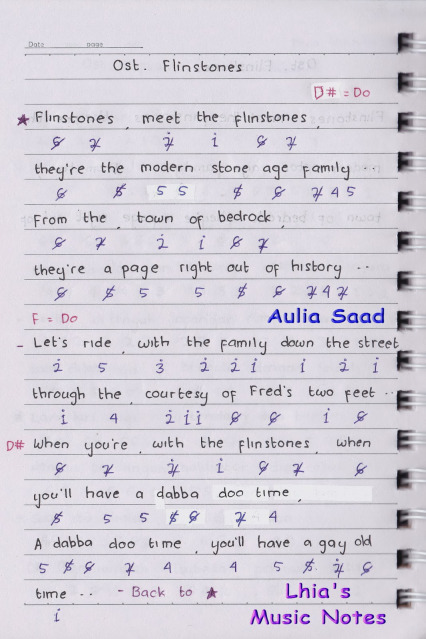 Date page
Ost. Flinstones
D# = Do
★ Flinstones, meet the flinstones,
6̸ 2̸ 2̸̇ 1̇ 6̸ 2̸
they're the modern stone age family ...
6̸ 5̸ 5 5 5̸ 6̸ 2̸ 4 5
From the, town of bedrock,
6̸ 2̸ 2̇ 1̇ 6̸ 2̸
they're a page right out of history ..
6̸ 5̸ 5 5 5̸ 6̸ 2̸ 4 2̸
F = Do Aulia Saad
- Let's ride, with the family down the street
2̇ 5 3̇ 2̇ 2̇ 1̇ 1̇ 2̇ 1̇
through the, courtesy of Fred's two feet ..
1̇ 4 2̇ 1̇ 1̇ 6̸ 6̸ 1̇ 6̸
D# When you're, with the flinstones, when
6̸ 2̸ 2̸̇ 1̇ 6̸ 2̸ 6̸
you'll have a dabba doo time,
5̸ 5 5 5̸ 6̸ 2̸ 4
A dabba doo time, you'll have a gay old
5 5̸ 6̸ 2̸ 4 4 5 5̸ 2̸̇ 6̸
time .. - Back to ★
1̇
Lhia's
Music Notes